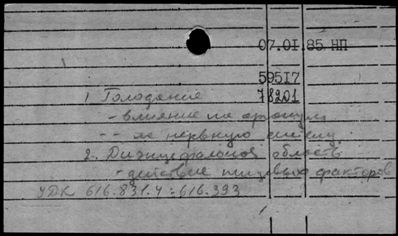 07.01.85 НП
59517
1. Голодание 78201
- влияние на организм
- - на нервную систему
2. Диэнцефальная область
- действие пищевых факторов
УДК 616.831.4:616.393